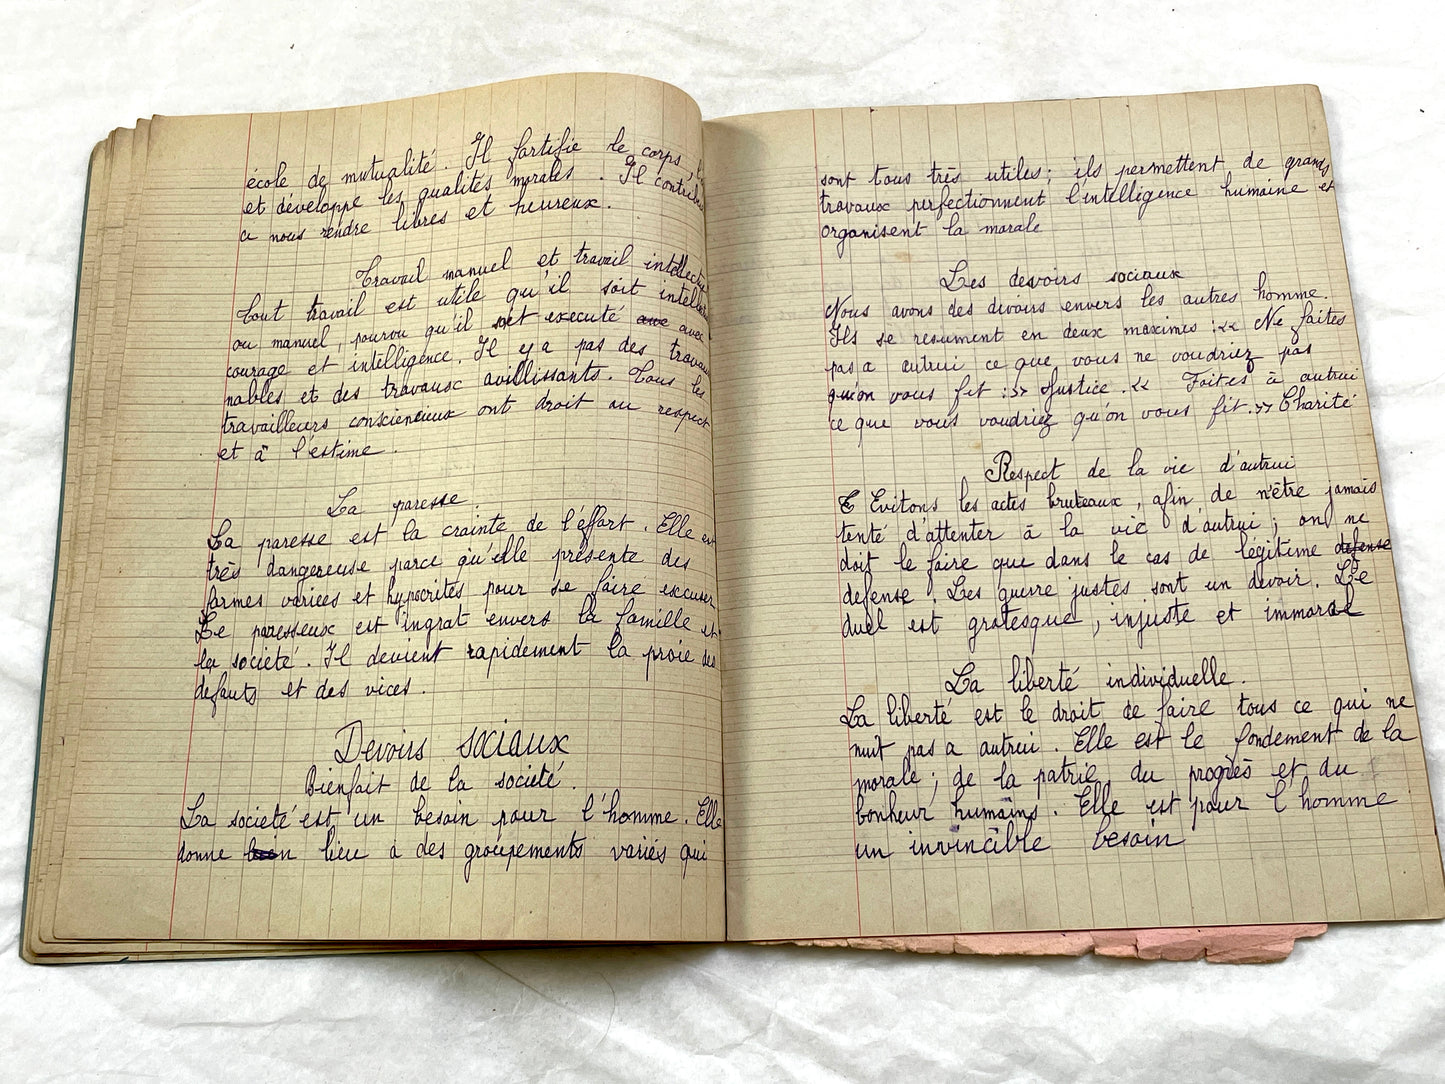 école de mutualité. Il fortifie le corps,
et développe les qualités morales. Il contribue
a nous rendre libres et heureux.
Travail manuel et travail intellectu
Tout travail est utile qu'il soit intellect
ou manuel, pourvu qu'il soit executé ave avec
courage et intelligence. Il y a pas des travaux
nables et des travaux avillissants. Tous les
travailleurs consciencieux ont droit au respect
et à l'estime.
La paresse
La paresse est la crainte de l'éffort. Elle est
très dangereuse parce qu'elle présente des
formes varices et hypocrites pour se faire excuser
Le paresseux est ingrat envers la famille et
la société. Il devient rapidement la proie des
defauts et des vices.
Devoirs sociaux
Bienfait de la société.
La société est un besoin pour l'homme. Elle
donne lieu à des groupements variés qui
sont tous très utiles; ils permettent de grands
travaux perfectionnent l'intelligence humaine et
organisent la morale
Les devoirs sociaux
Nous avons des devoirs envers les autres homme.
Ils se resument en deux maximes : << Ne faites
pas a autrui ce que vous ne voudriez pas
qu'on vous fit :>> Justice. << Faites à autrui
ce que vous voudriez qu'on vous fit.>> Charité
Respect de la vie d'autrui
E Evitons les actes bruteaux, afin de n'être jamais
tenté d'attenter à la vie d'autrui; on ne
doit le faire que dans le cas de légitime defense
defense. Les guerre justes sont un devoir. Le
duel est grotesque, injuste et immoral
La liberté individuelle.
La liberté est le droit de faire tous ce qui ne
nuit pas a autrui. Elle est le fondement de la
morale; de la patrie, du progrès et du
bonheur humains. Elle est pour l'homme
un invincible besoin